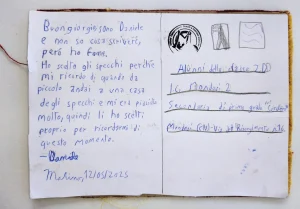 Buongiorgio sono Daniele
e non so cosa scrivervi,
però ho fame.
Ho scelto gli specchi perché
mi ricordo di quando da
piccolo andai a una casa
degli specchi e mi ci risi
molto, quindi li ho scelti
proprio per ricordarmi di
questo momento.
- Daniele
12/05/2025
Alunni della classe 2D
I.C. Mondovì 2
Secondaria di primo grado
Mondovì (CN)-Via